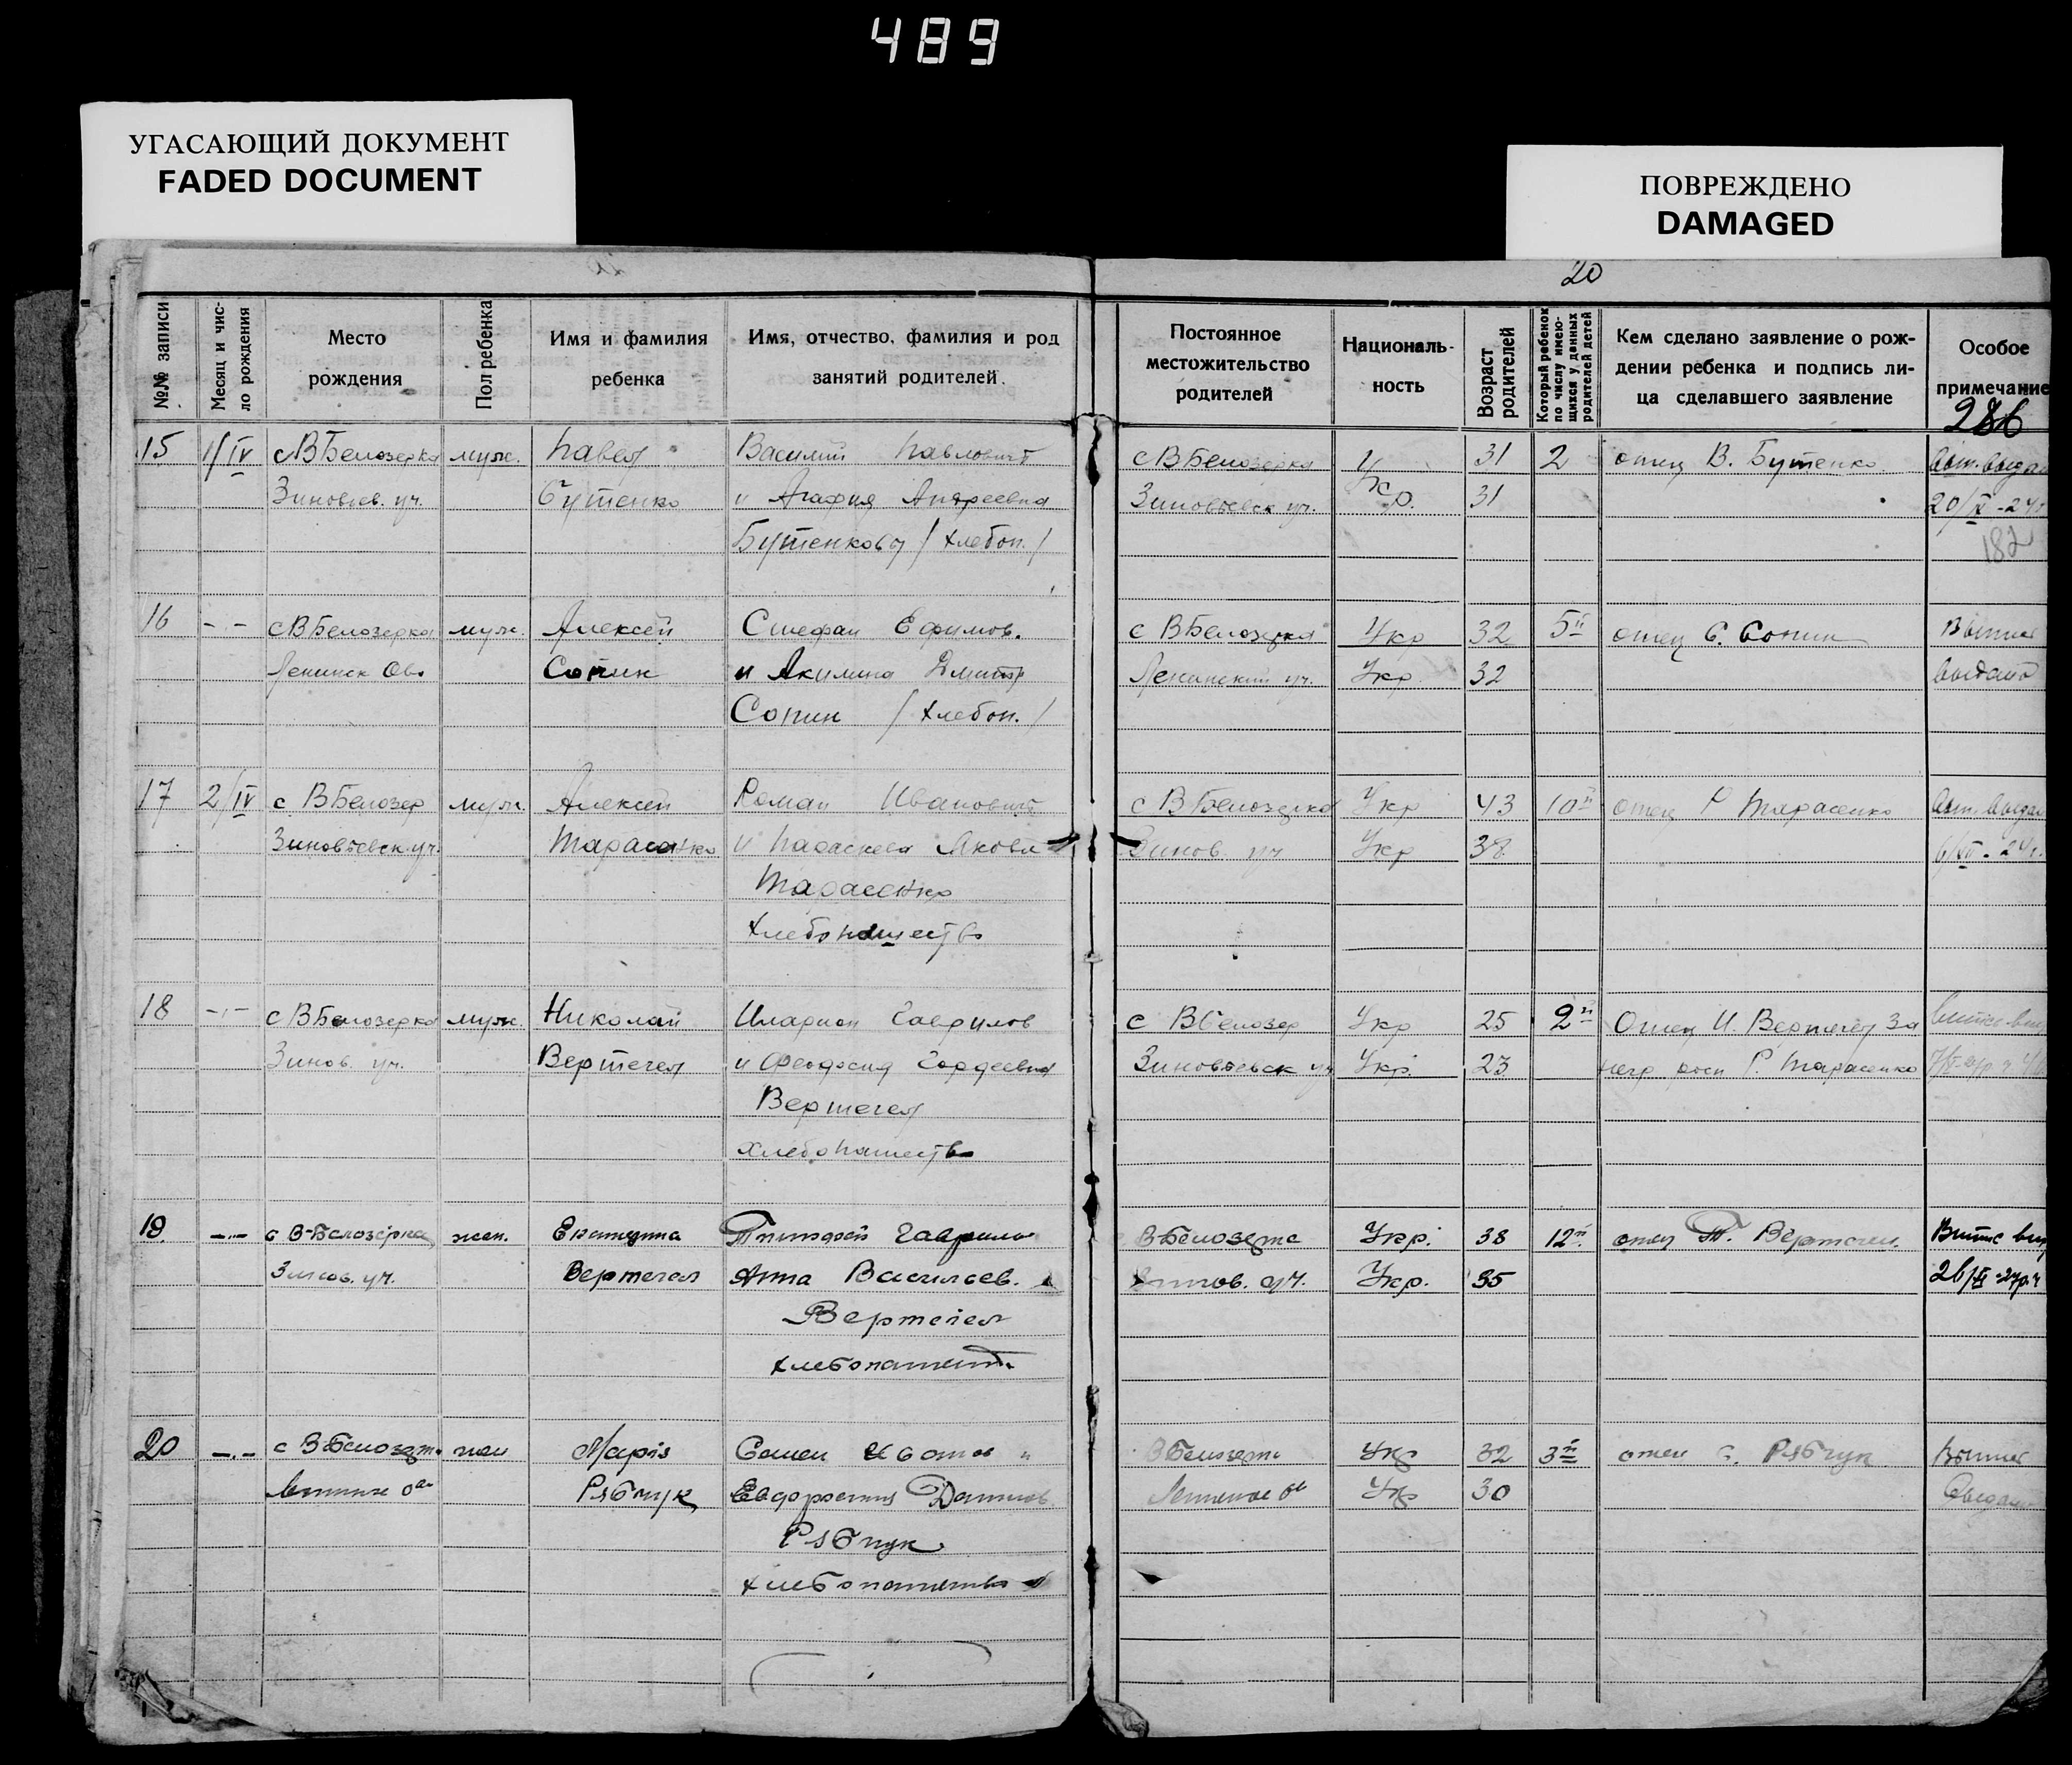 489
УГАСАЮЩИЙ ДОКУМЕНТ
FADED DOCUMENT
ПОВРЕЖДЕНО
DAMAGED
20
№№ записи
Месяц и чис-
ло рождения
Место
рождения
Пол ребенка
Имя и фамилия
ребенка
Имя, отчество, фамилия и род
занятий родителей.
Постоянное
местожительство
родителей
Националь-
ность
Возраст
родителей
Который ребенок
по числу имею-
щихся у данных
родителей детей
Кем сделано заявление о рож-
дении ребенка и подпись ли-
ца сделавшего заявление
Особое
примечание
286
15 1/IV с В Белозерка муж. Павел Василий Павлович с В Белозерка Укр. 31 2 отец В. Бутенко
Зиновьев. уч. Бутенко и Агафия Андреевна Зиновьевск уч. 31 20/IX-24
Бутенковы / хлебоп. / 182
16 -"- с В Белозерка муж. Алексей Стефан Ефимов. с В Белозерка Укр 32 5й отец С. Сопин
Ленинск Сопин и Акилина Дмитр Ленинский уч. Укр. 32 выдано
Сопин / хлебоп. /
17 2/IV с В Белозер муж. Алексей Роман Иванович с В Белозерка Укр 43 10й отец Р Тарасенко
Зиновьевск. уч. Тарасенко и Параскева Яковл Зинов. уч Укр 38
Тарасенко
хлебопашество
18 -"- с В Белозерка муж. Николай Иларион Гаврилов с В Белозер Укр 25 2й Отец И. Вертегел За
Зинов. уч. Вертегел и Феодосия Гордеевна Зиновьевск уч Укр. 23 негр росп Р. Тарасенко
Вертегел
хлебопашество
19. -"- с В-Белозерка жен. Екатерина Тимофей Гаврилов В Белозерка Укр. 38 12й отец Т. Вертегел.
Зинов. уч. Вертегел Анна Васильев. Зинов. уч. Укр. 35
Вертегел
хлебопашест.
20 -"- с В Белозер жен Марія Семен В Белозерка Укр 32 3й отец С. Рябчук
Рябчук Данилов. Укр 30
Рябчук
хлебопашество